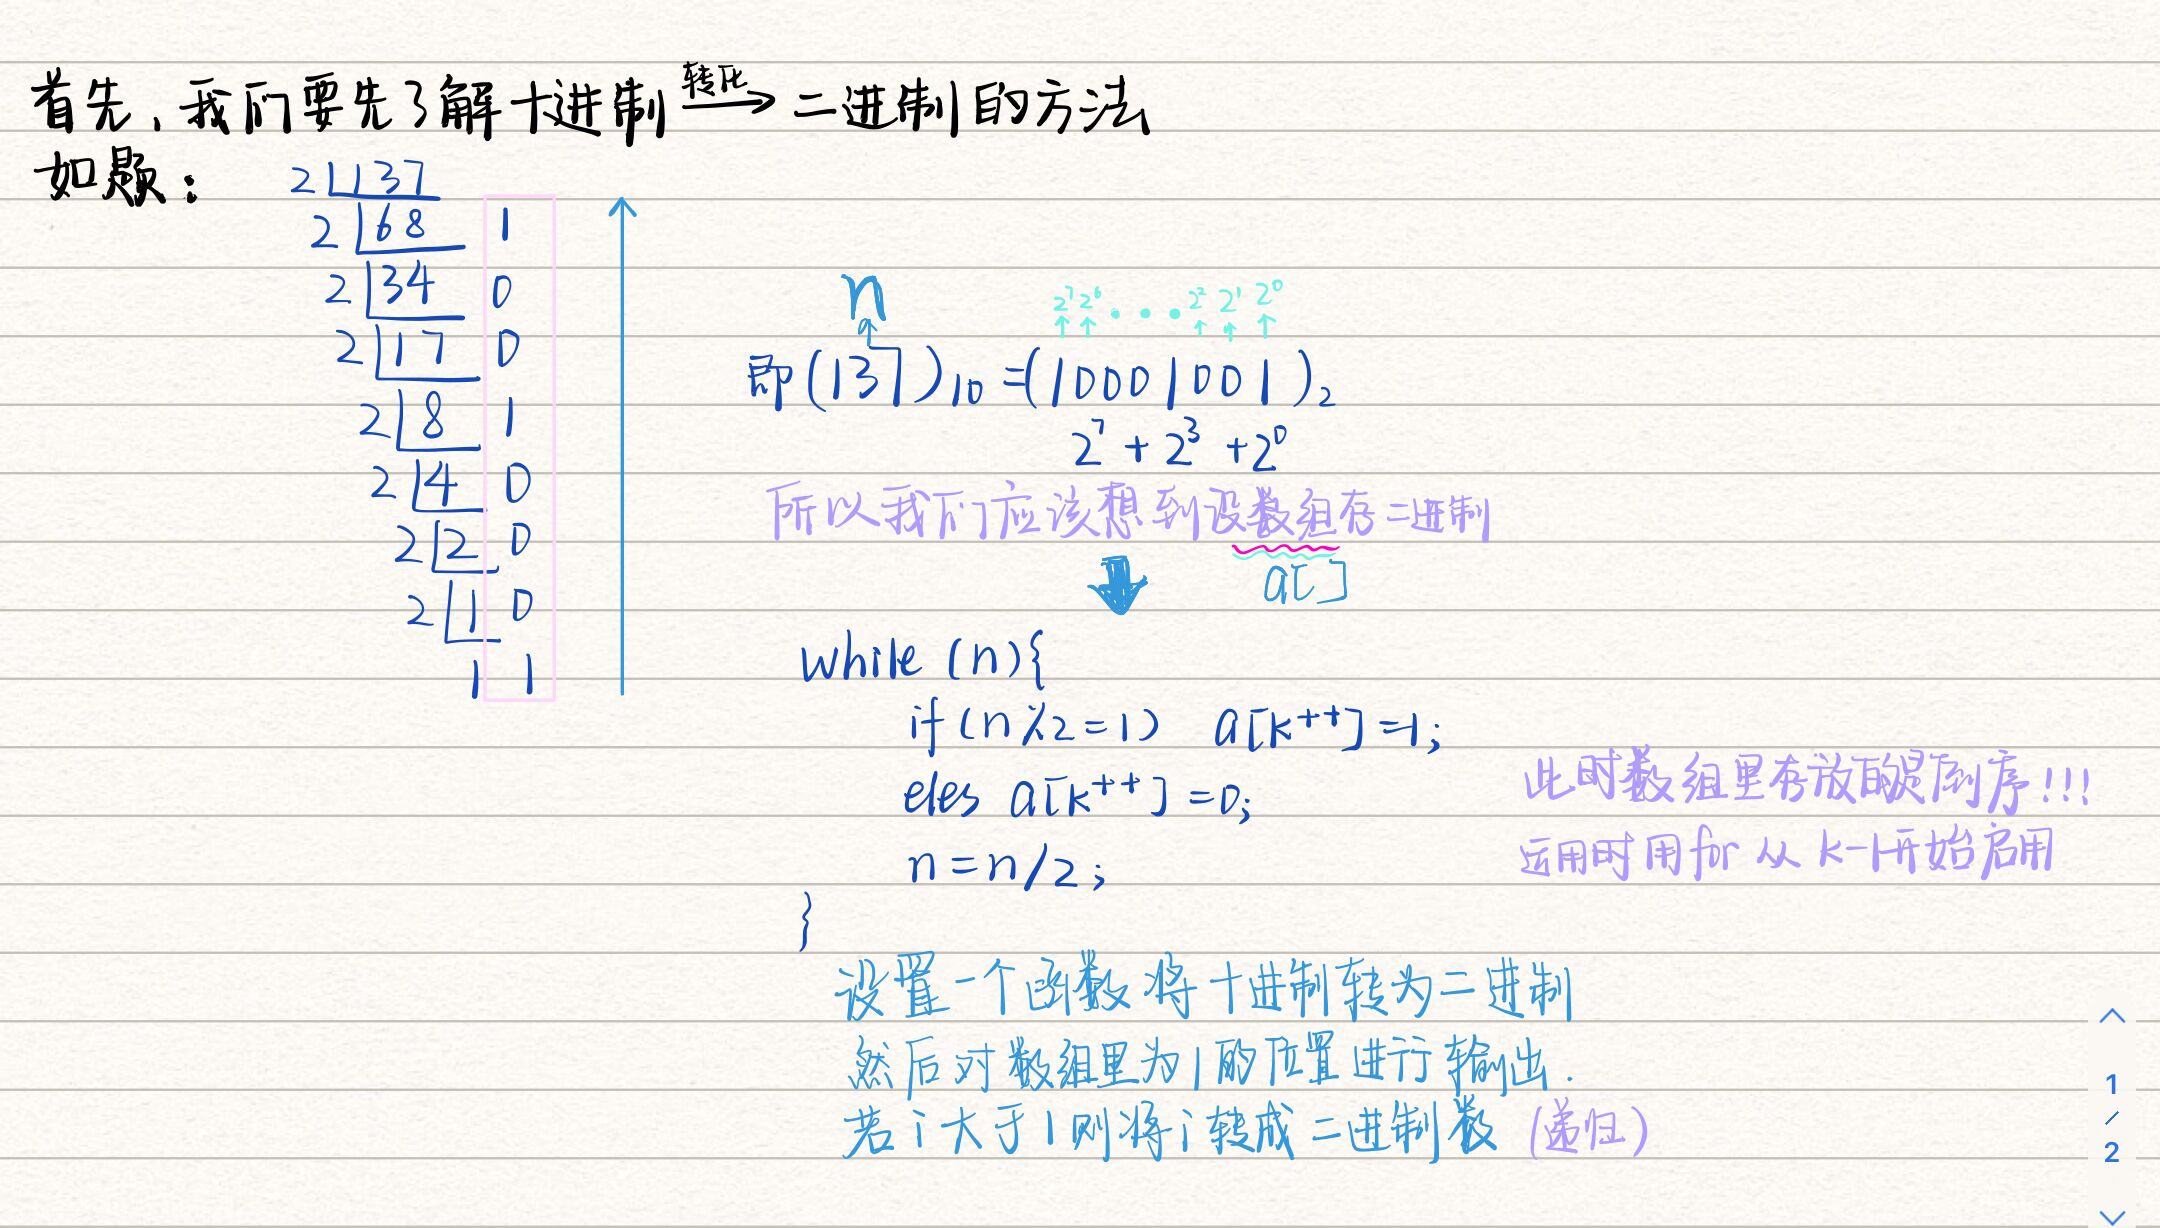 首先，我们要先了解十进制 转化 二进制的方法
如题：
2 137
2 68 1
2 34 0
2 17 0
2 8 1
2 4 0
2 2 0
2 1 0
1 1
n
2⁷ 2⁶ ··· 2² 2¹ 2⁰
即(137)₁₀=(10001001)₂
2⁷+2³+2⁰
所以我们应该想到设数组存二进制
a[]
while (n){
if(n%2=1) a[k++]=1;
eles a[k++]=0;
n=n/2;
}
此时数组里存放的是倒序!!!
运用时用for从k-1开始启用
设置一个函数将十进制转为二进制
然后对数组里为1的位置进行输出.
若i大于1则将i转成二进制数 (递归)
1
/
2